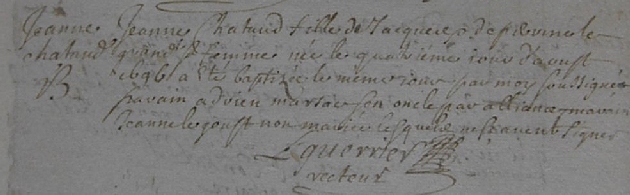 Jeanne Jeanne Chataud fille de Jacques &
chataud grand sa femme née le quatrieme jour d'aoust
B 1696 a été baptizée le meme jour par moy soussigné
parain adrien marsac son oncle par alliance maraine
Jeanne le goust non mariée lesquels ne scavent signer
Lguerrier
recteur